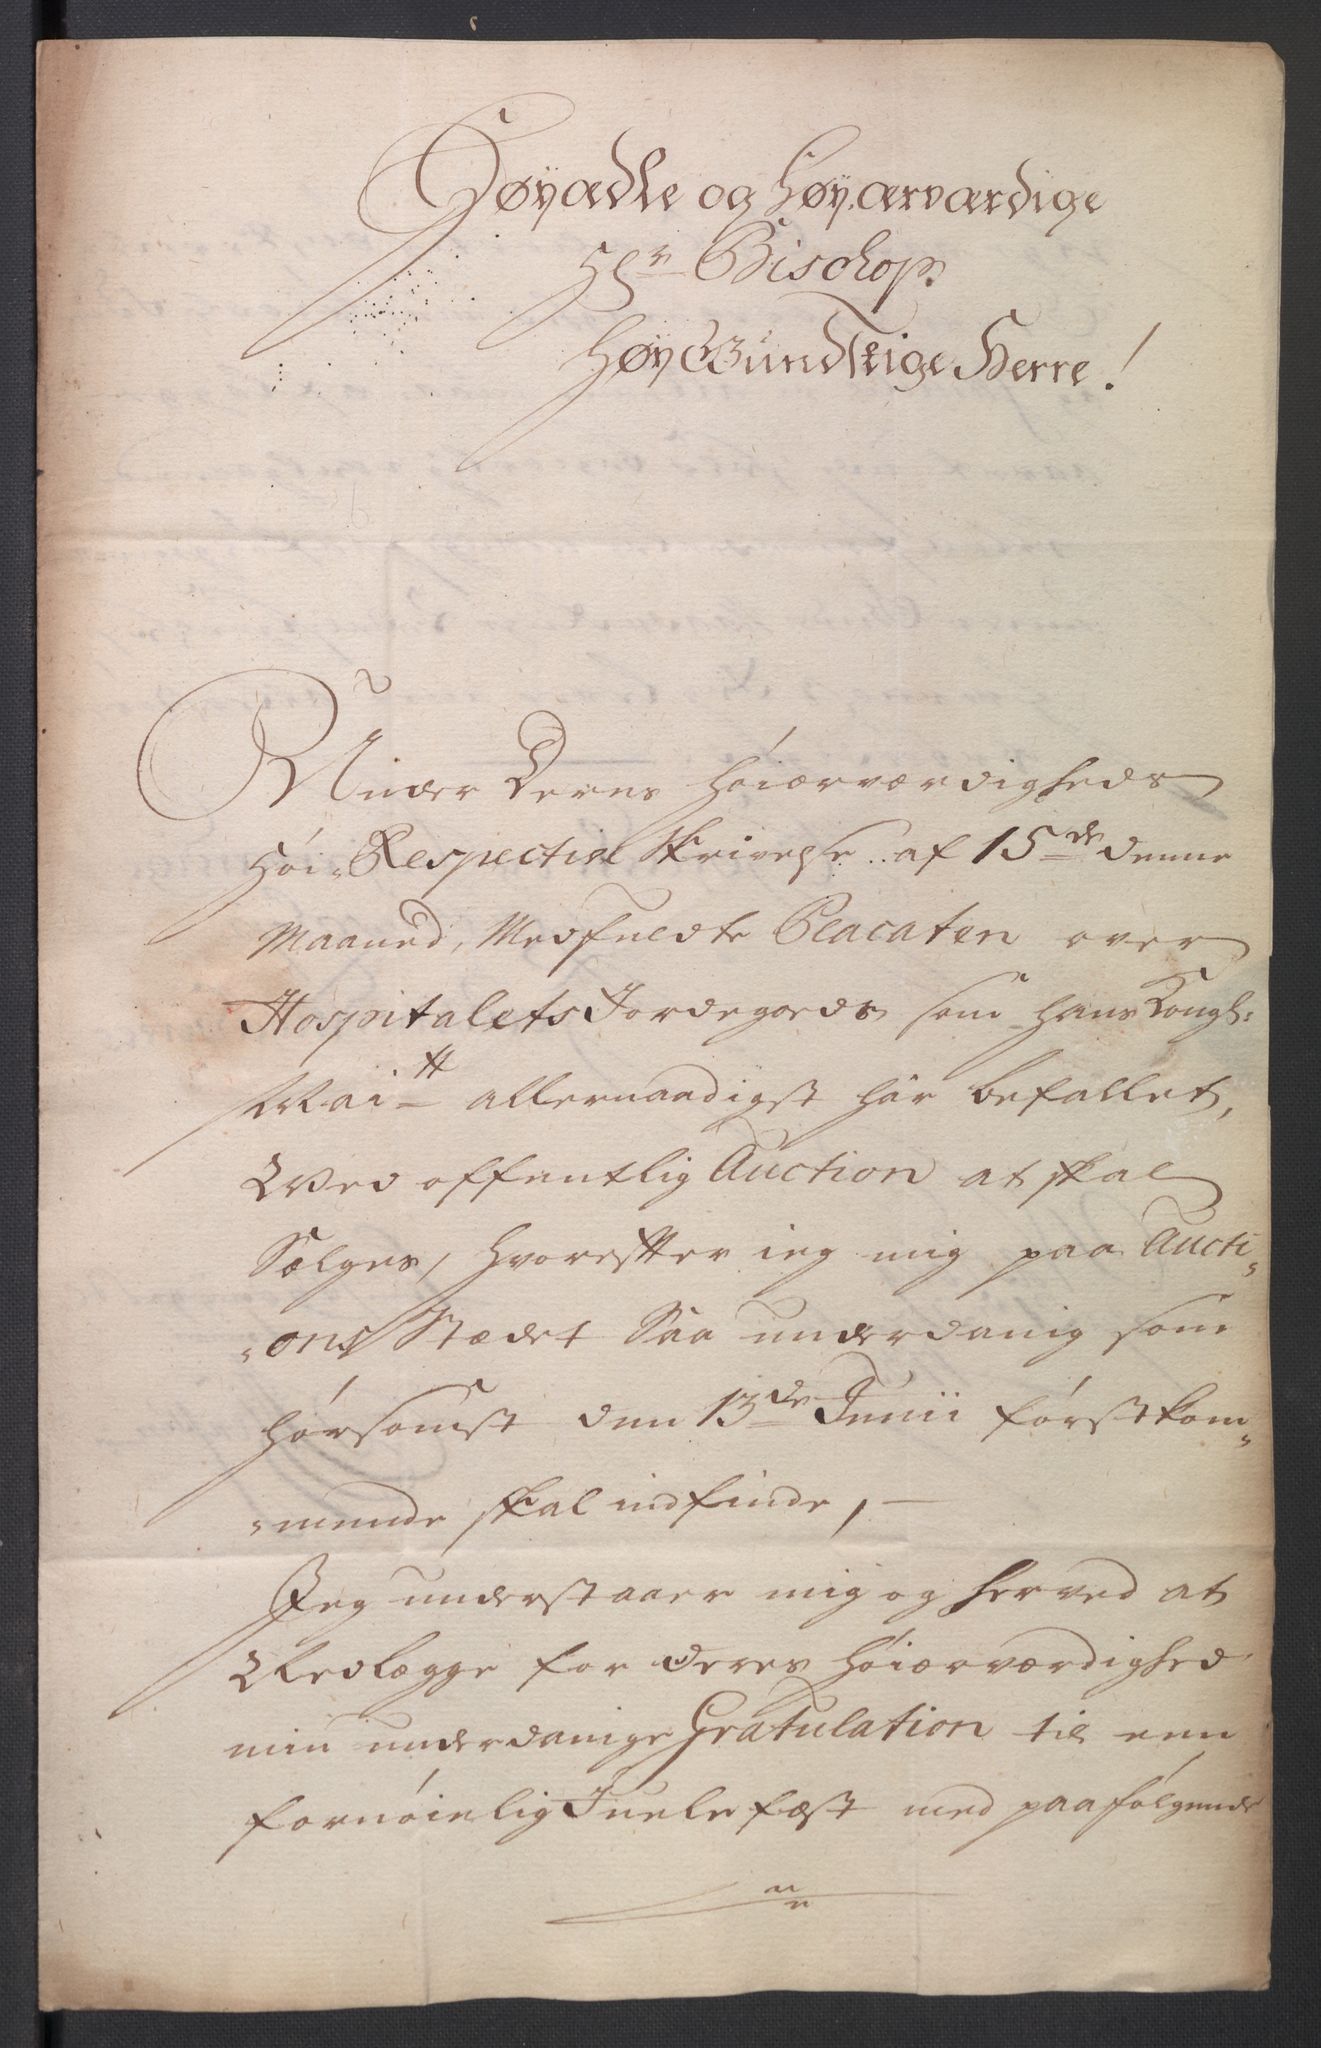 Høyædle og Høyærværdige
Hr Bischop
Høygundstige Herre!
Under Deres Høiærværdigheds
Høi-Respective Skrivelse af 15de denne
Maaned, Medfuldte Placaten over
Hospitalets Jordegods som hans Kongl:
Mai-tt allernaadigst har befallet,
Ved offentlig Auction at skal
Sælges, hvorefter ieg mig paa Aucti-
-ons Stædet saa underdanig som
hørsomst den 13de Junii førstkom-
-mende skal indfinde, -
Jeg understaaer mig og herved at
Nedlægge for deres høiærværdighed
min underdanige Gratulation til enn
fornøielig Juule fæst med paafølgende